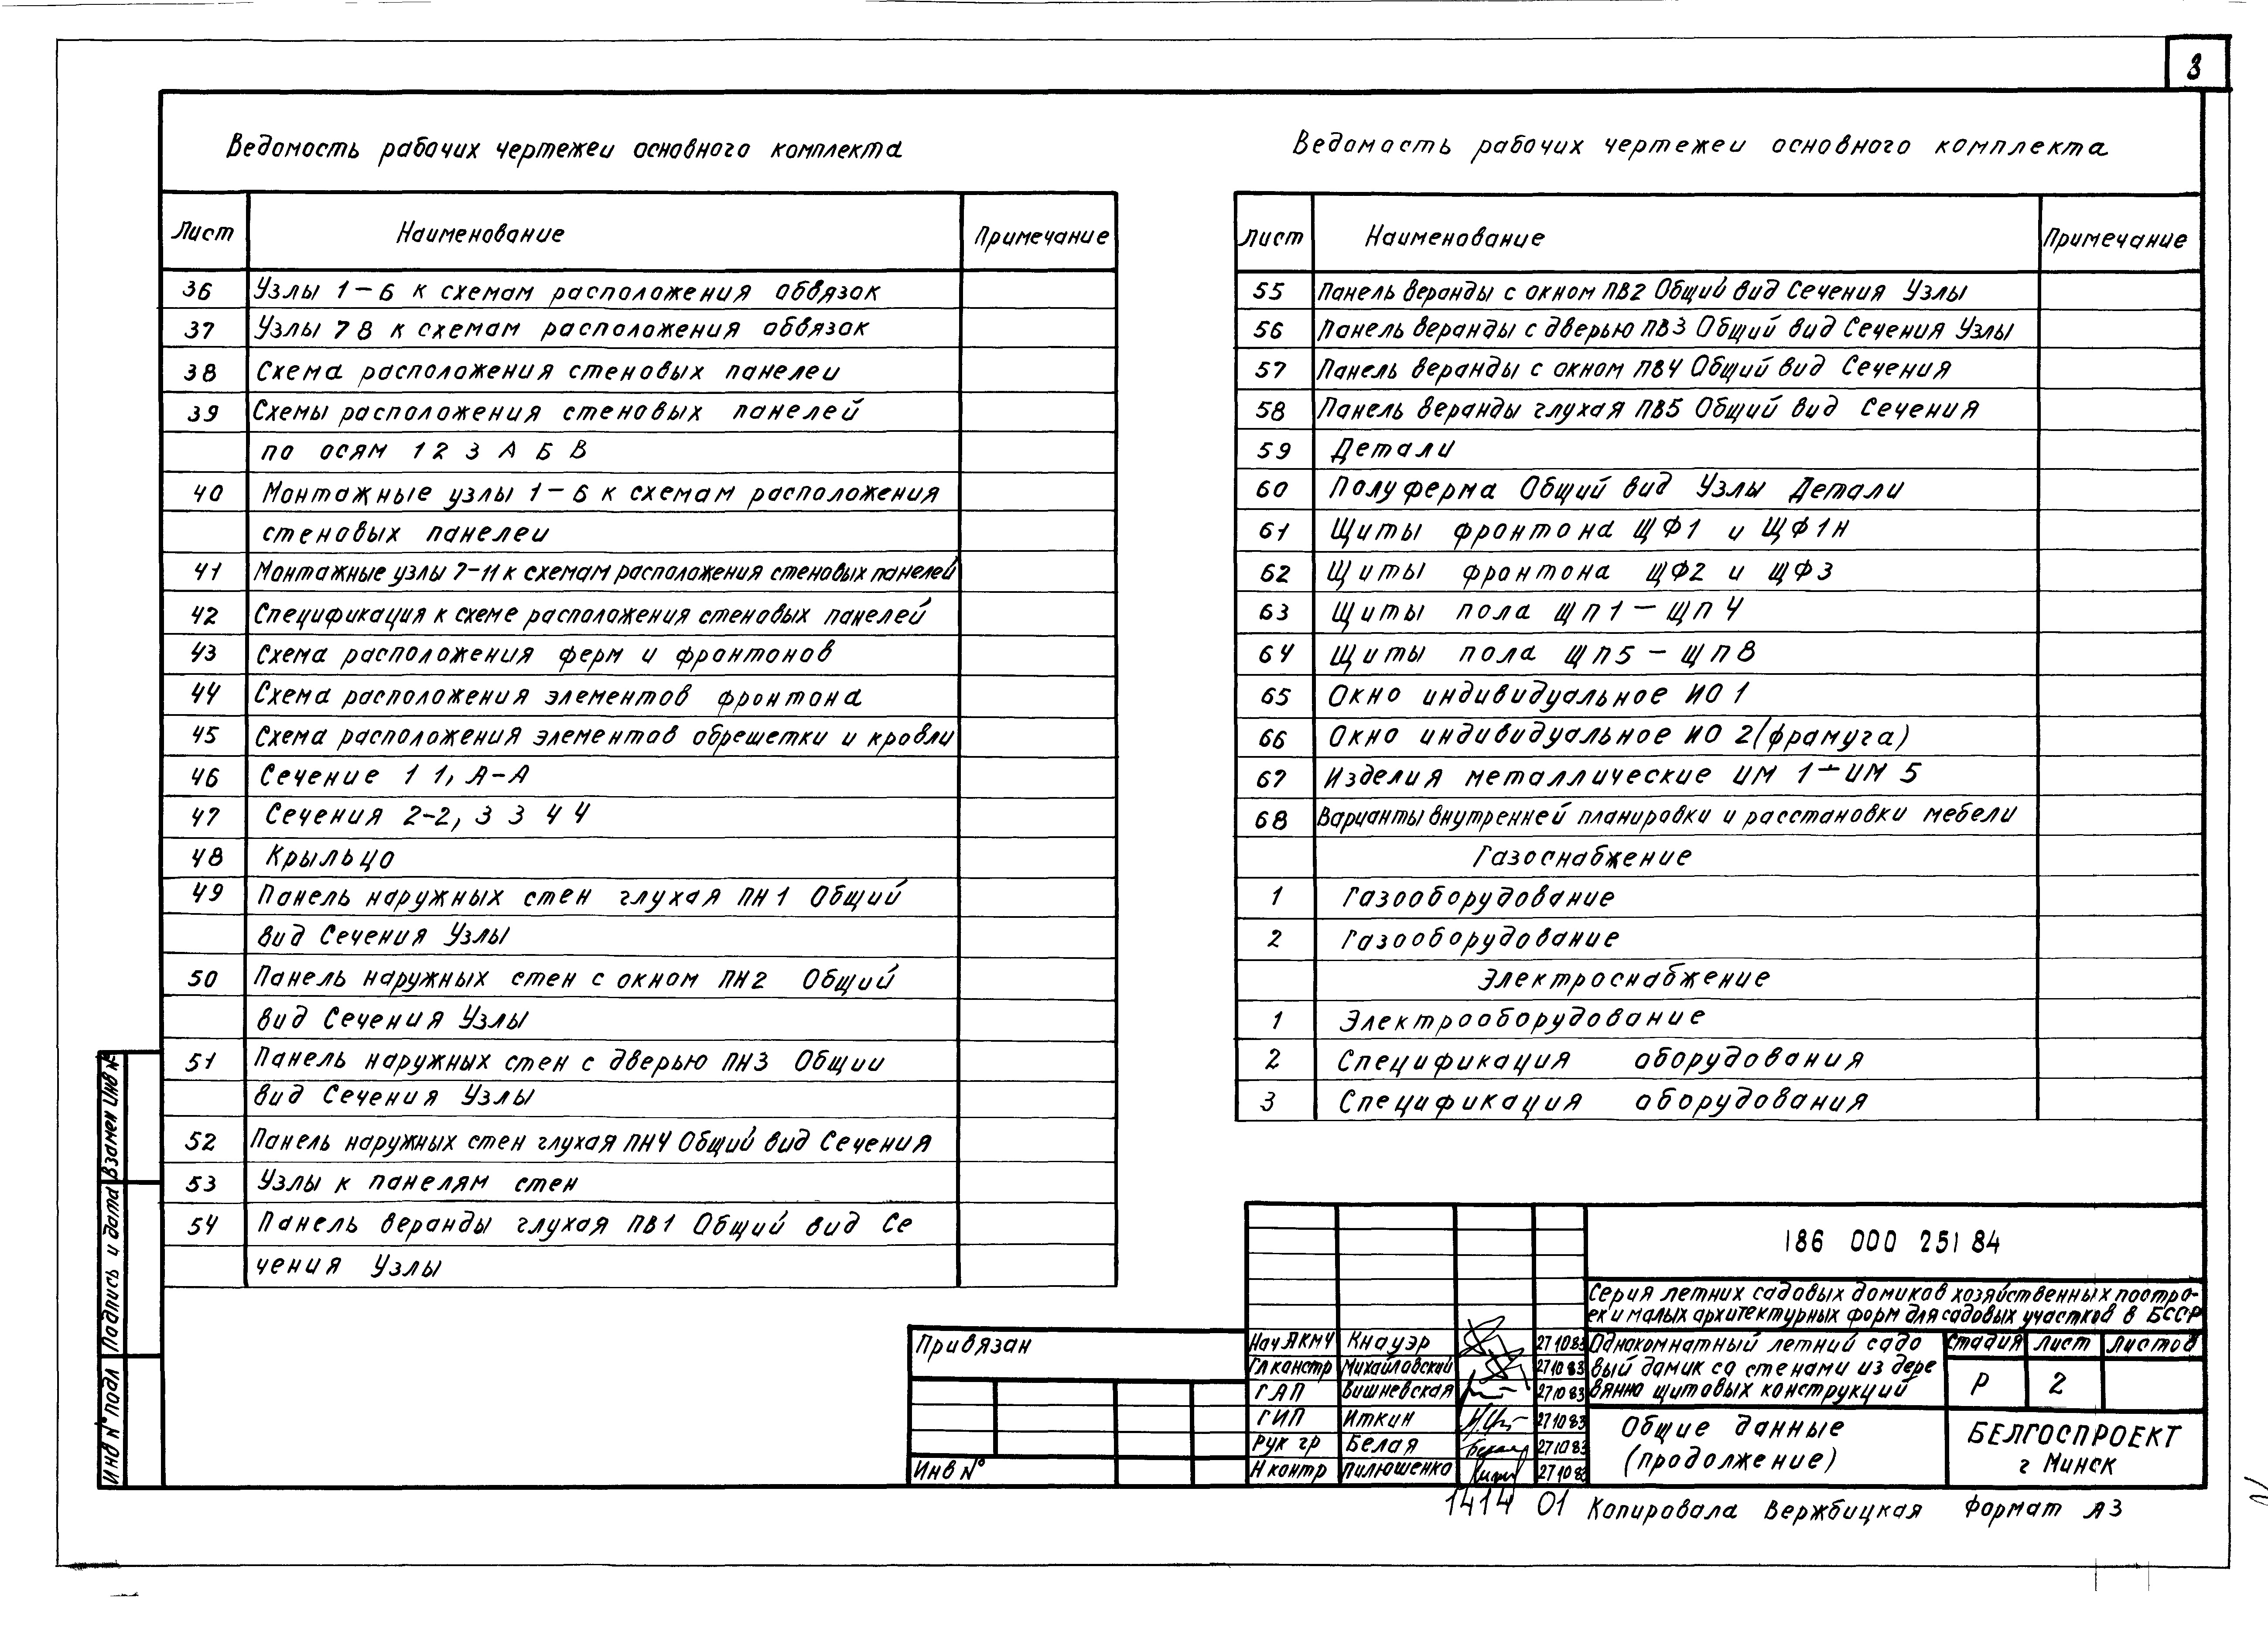 3
Ведомость рабочих чертежеи основного комплекта
Лист Наименование Примечание
36 Узлы 1-6 к схемам расположения обвязок
37 Узлы 7 8 к схемам расположения обвязок
38 Схема расположения стеновых панелеи
39 Схемы расположения стеновых панелей
по осям 1 2 3 А Б В
40 Монтажные узлы 1-6 к схемам расположения
стеновых панелеи
41 Монтажные узлы 7-11 к схемам расположения стеновых панелей
42 Спецификация к схеме расположения стеновых панелей
43 Схема расположения ферм и фронтонов
44 Схема расположения элементов фронтона
45 Схема расположения элементов обрешетки и кровли
46 Сечение 1 1, А-А
47 Сечения 2-2, 3 3 4 4
48 Крыльцо
49 Панель наружных стен глухая ПН1 Общий
вид Сечения Узлы
50 Панель наружных стен с окном ПН2 Общий
вид Сечения Узлы
51 Панель наружных стен с дверью ПН3 Общии
вид Сечения Узлы
52 Панель наружных стен глухая ПН4 Общий вид Сечения
53 Узлы к панелям стен
54 Панель веранды глухая ПВ1 Общий вид Се
чения Узлы
Ведомость рабочих чертежеи основного комплекта
Лист Наименование Примечание
55 Панель веранды с окном ПВ2 Общий вид Сечения Узлы
56 Панель веранды с дверью ПВ3 Общий вид Сечения Узлы
57 Панель веранды с окном ПВ4 Общий вид Сечения
58 Панель веранды глухая ПВ5 Общий вид Сечения
59 Детали
60 Полуферма Общий вид Узлы Детали
61 Щиты фронтона ЩФ1 и ЩФ1Н
62 Щиты фронтона ЩФ2 и ЩФ3
63 Щиты пола ЩП1-ЩП4
64 Щиты пола ЩП5-ЩП8
65 Окно индивидуальное ИО 1
66 Окно индивидуальное ИО 2 (фрамуга)
67 Изделия металлические ИМ 1-ИМ 5
68 Варианты внутренней планировки и расстановки мебели
Газоснабжение
1 Газооборудование
2 Газооборудование
Электроснабжение
1 Электрооборудование
2 Спецификация оборудования
3 Спецификация оборудования
Взамен инв №
Подпись и дата
Инв № подл
Привязан
Инв №
186 000 251 84
Серия летних садовых домиков хозяйственных постро-
ек и малых архитектурных форм для садовых участков в БССР
Нач АКМЧ Кнауэр 27 10 83
Гл констр Михайловский 27 10 83
ГАП Вишневская 27 10 83
ГИП Иткин 27 10 83
Рук гр Белая 27 10 83
Н контр Пилюшенко 27 10 83
Однокомнатный летний садо
вый домик со стенами из дере
вянно щитовых конструкций
Стадия Лист Листов
Р 2
Общие данные
(продолжение)
БЕЛГОСПРОЕКТ
г Минск
1414 01 Копировала Вержбицкая Формат А3